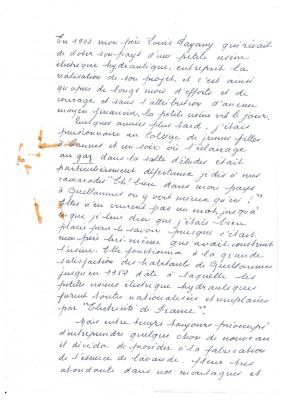 En 1902 mon père Louis Payany qui rêvait
de doter son pays d'une petite usine
électrique hydraulique, entreprit la
réalisation de son projet, et c'est ainsi
qu'après de longs mois d'efforts et de
courage et sans l'attribution d'aucun
moyen financier, la petite usine vit le jour.
Quelques années plus tard, j'étais
pensionnaire au Collège de jeunes filles
à Cannes et un soir où l'éclairage
au gaz dans la salle d'études était
particulièrement défectueux je dis à mes
camarades "Eh! bien dans mon pays
à Guillaumes on y voit mieux qu'ici!"
Elles n'en crurent pas un mot jusqu'à
que je leur dise que j'étais bien
placée pour le savoir puisque c'était
mon père lui-même qui avait construit
l'usine. Elle fonctionna à la grande
satisfaction des habitants de Guillaumes
jusqu'en 1957 date à laquelle les
petites usines électriques hydrauliques
furent toutes nationalisées et remplacées
par "Electricité de France".
Mais entre temps toujours préoccupé
d'entreprendre quelque chose de nouveau
il décida de procéder à la fabrication
de l'essence de lavande, fleur très
abondante dans nos montagnes et